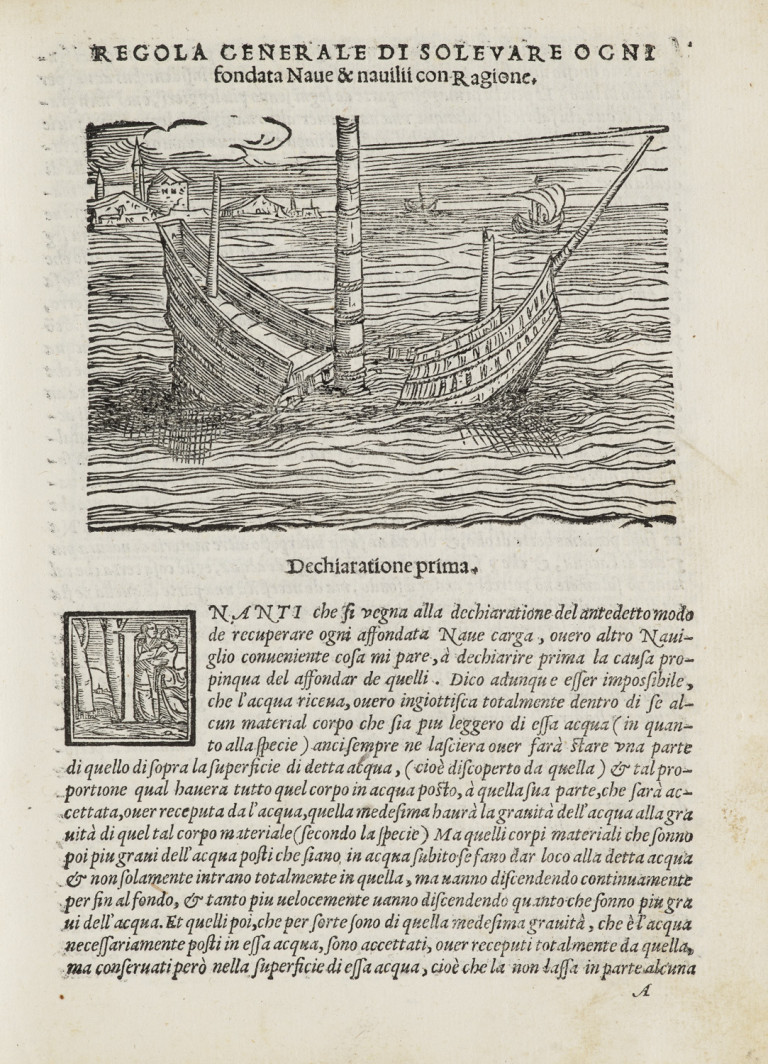 REGOLA GENERALE DI SOLEVARE OGNI
fondata Naue & nauilii con Ragione.
Dechiaratione prima.
INANTI che ſi vegna alla dechiaratione del antedetto modo
de recuperare ogni affondata Naue carga, ouero altro Naui-
glio conueniente coſa mi pare, à dechiarire prima la cauſa pro-
pinqua del affondar de quelli. Dico adunque eſſer impoſſibile,
che l'acqua riceua, ouero ingiottiſca totalmente dentro di ſe al-
cun material corpo che ſia piu leggero di eſſa acqua (in quan-
to alla ſpecie) anci ſempre ne laſciera ouer farà ſtare vna parte
di quello di ſopra la ſuperficie di detta acqua, (cioè diſcoperto da quella) & tal pro-
portione qual hauera tutto quel corpo in acqua poſto, à quella ſua parte, che ſarà ac-
cettata, ouer receputa da l'acqua, quella medeſima haurà la grauità dell'acqua alla gra
uità di quel tal corpo materiale (ſecondo la ſpecie) Ma quelli corpi materiali che ſonno
poi piu graui dell'acqua poſti che ſiano, in acqua ſubito ſe fano dar loco alla detta acqua
& non ſolamente intrano totalmente in quella, ma uanno diſcendendo continuamente
per fin al fondo, & tanto piu uelocemente uanno diſcendendo quanto che ſonno piu gra
ui dell'acqua. Et quelli poi, che per ſorte ſono di quella medeſima grauità, che è l'acqua
neceſſariamente poſti in eſſa acqua, ſono accettati, ouer receputi totalmente da quella,
ma conſeruati però nella ſuperficie di eſſa acqua, cioè che la non laſſa in parte alcuna
A